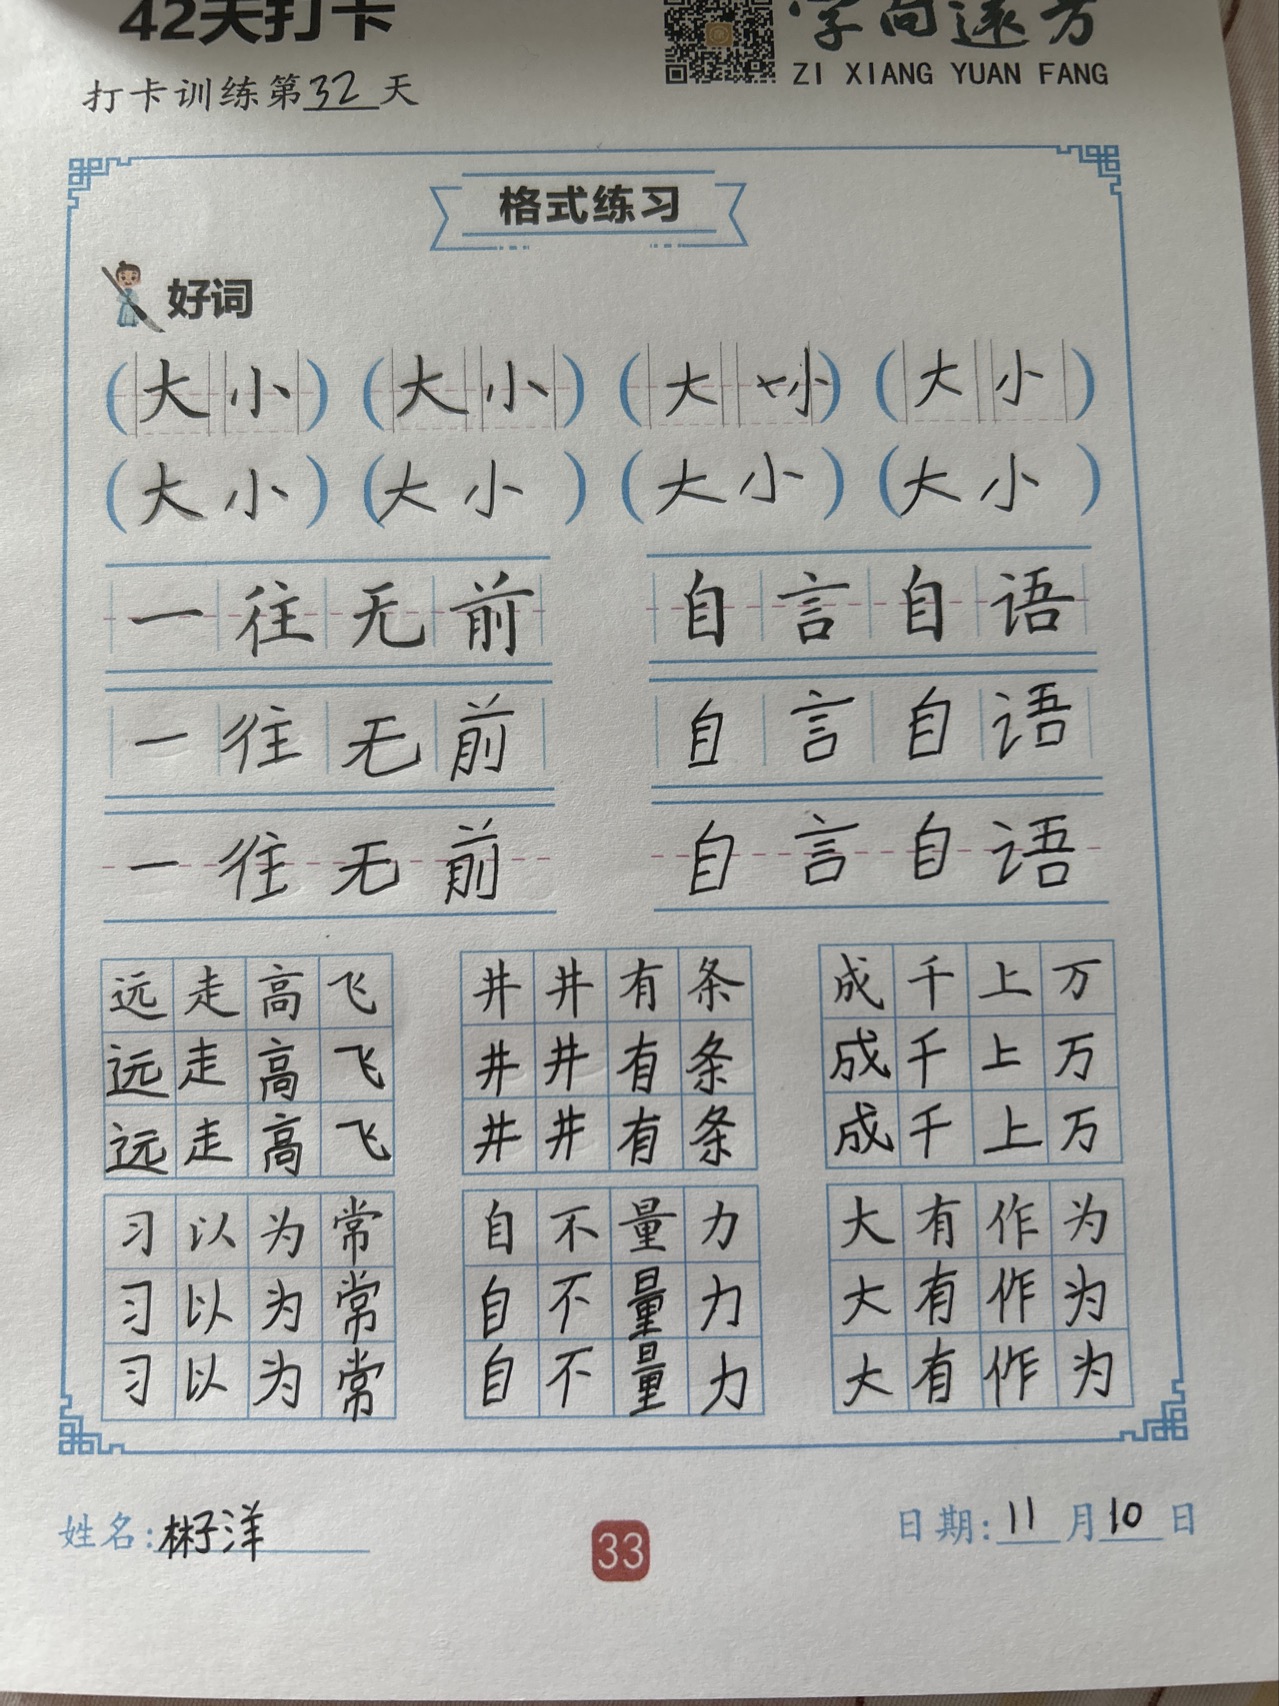 42天打卡
字向远方
ZI XIANG YUAN FANG
打卡训练第32天
格式练习
好词
(大小) (大小) (大小) (大小)
(大小) (大小) (大小) (大小)
一往无前 自言自语
一往无前 自言自语
一往无前 自言自语
远走高飞 井井有条 成千上万
远走高飞 井井有条 成千上万
远走高飞 井井有条 成千上万
习以为常 自不量力 大有作为
习以为常 自不量力 大有作为
习以为常 自不量力 大有作为
姓名: 日期:11月10日
33